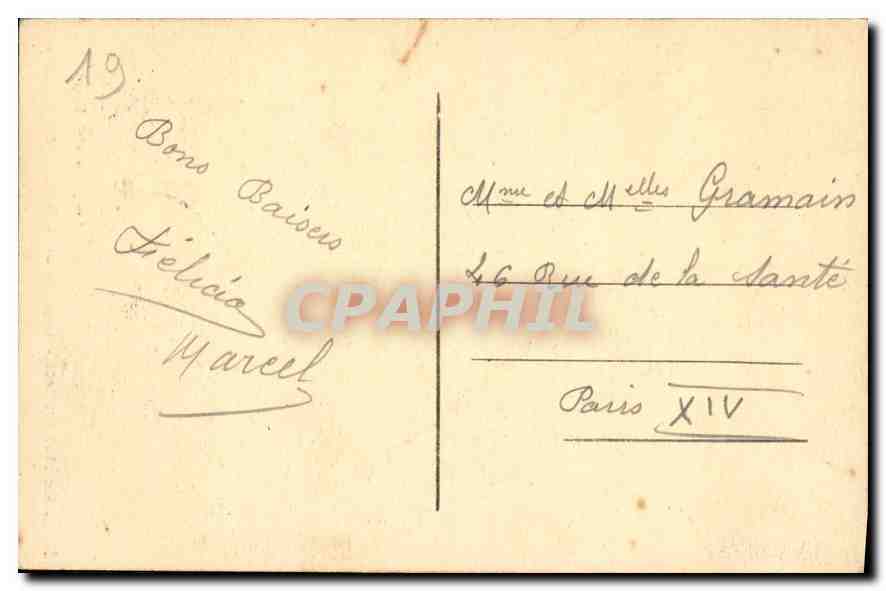 19
Bons Baisers
Félicia
Marcel
Mme et Melles Gramain
46 Rue de la Santé
Paris XIV
CPAPHIL